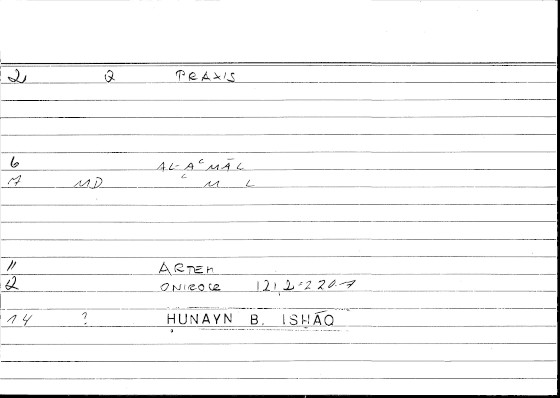 2 Q PRAXIS
6 AL-AʿMĀL
7 MD ʿ M L
11 ARTEM
2 ONIROCR 121,2=220-7
14 ? ḤUNAYN B. ISḤĀQ